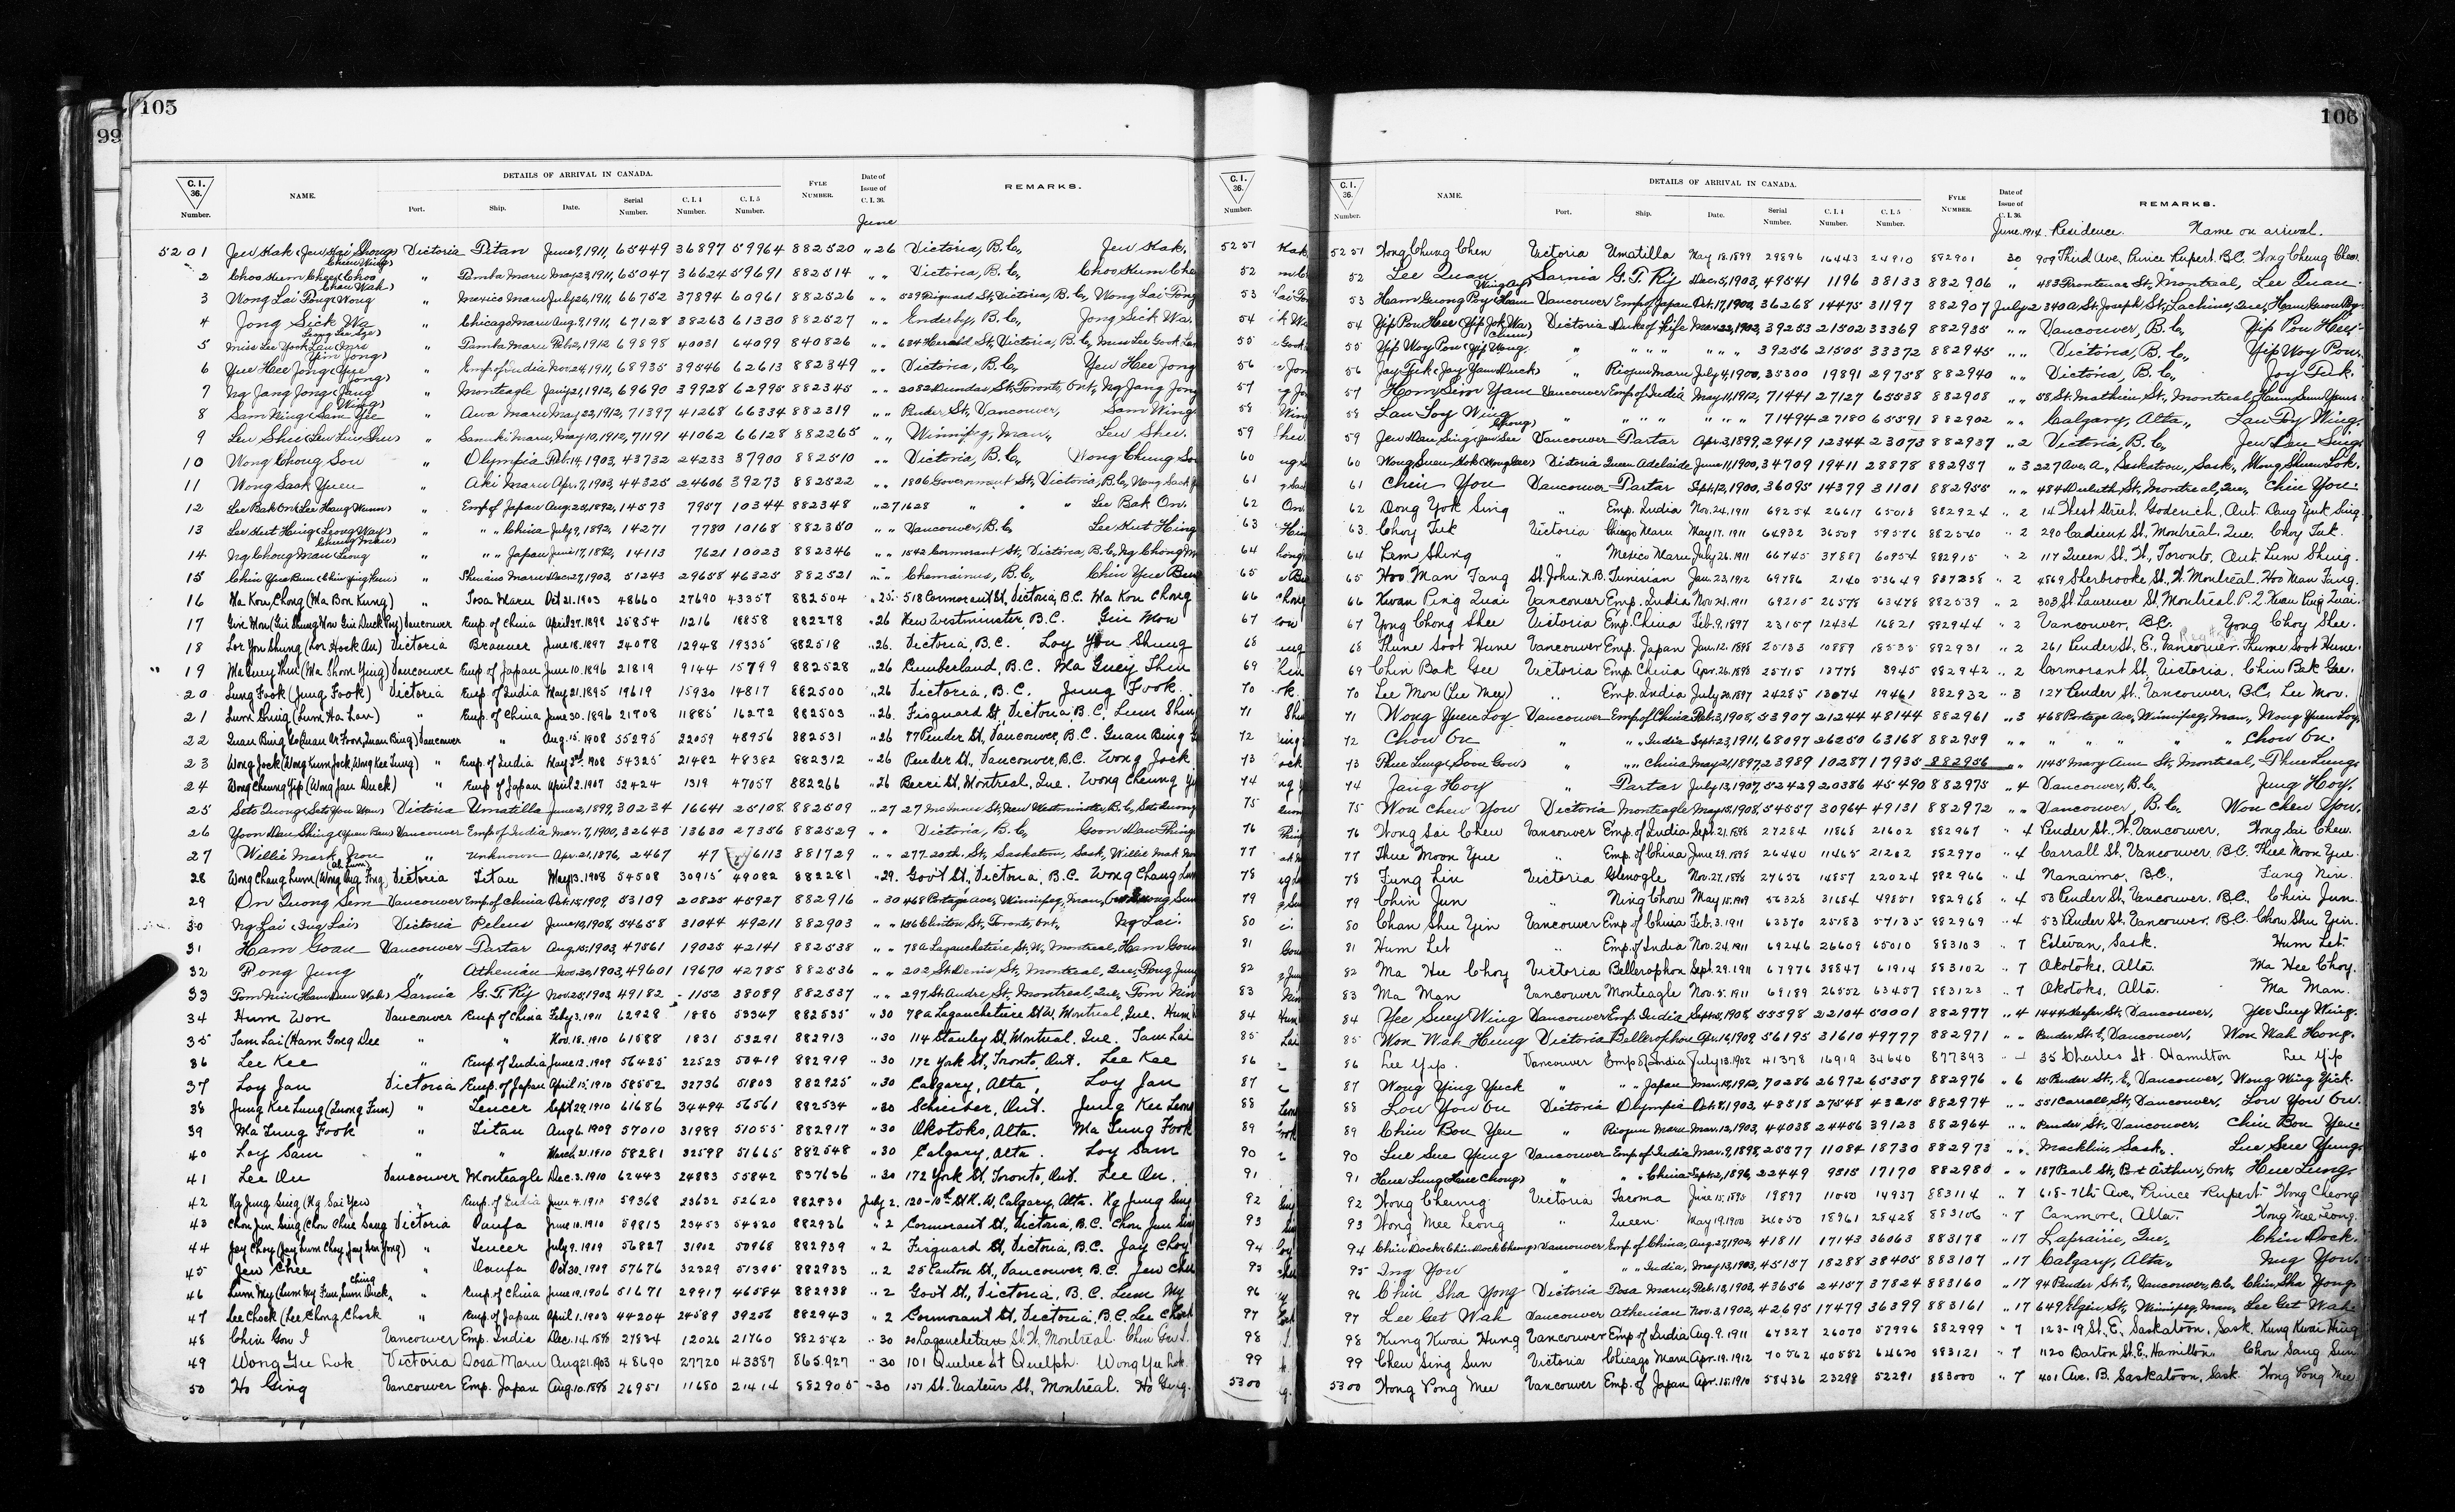 105
99
C. I. 36. Number. NAME. DETAILS OF ARRIVAL IN CANADA. Port. Ship. Date. Serial Number. C. I. 4 Number. C. I. 5 Number. FYLE NUMBER. Date of Issue of C. I. 36. REMARKS.
June
5201 Victoria Titan June 9, 1911, 65449 36897 59964 882520 " 26 Victoria, B.C.,
2 " Tamba Maru May 23, 1911, 65047 36624 59691 882514 " " Victoria, B.C.,
3 Wong Lai " Mexico Maru July 26, 1911, 66752 37894 60961 882526 " " Victoria, B.C., Wong Lai
4 Jong Sick Wa " Chicago Maru Aug. 9, 1911, 67128 38263 61330 882527 " " Enderby, B.C., Jong Sick Wa.
5 Miss Lee Yook Lan " Tamba Maru Feb. 2, 1912 69898 40031 64099 840826 " " 684 Herald St., Victoria, B.C., Miss Lee
6 Yue Hee Jong " Emp of India Nov. 24, 1911, 68935 39546 62613 882349 " " Victoria, B.C., Yeu Hee Jong
7 Ng Jang Jong " Monteagle Jany 21, 1912, 69690 39928 62995 882345 " " 2082 Dundas St., Toronto, Ont., Ng Jang Jong
8 Sam Wing (Sam Yee Wing) " Awa Maru May 22, 1912, 71397 41268 66334 882319 " " Pender St., Vancouver, Sam Wing
9 Leu Shu (Leu Lin Shu) " Sanuki Maru, May 10, 1912, 71191 41062 66128 882265 " " Winnipeg, Man., Leu Shu.
10 Wong Chong Sou " Olympia Feb. 14, 1903, 43732 24233 37900 882510 " " Victoria, B.C., Wong Chung
11 Wong Sack Yuen " Aki Maru Apr. 7, 1903, 44325 24606 39273 882522 " " 1806 Government St., Victoria, B.C., Wong Sack
12 Lee Bak On " Emp of Japan Aug. 25, 1892, 14573 7957 10344 882348 " 27 1628 " " " Lee Bak On.
13 Lee Hut Hing " " " China July 9, 1892, 14271 7780 10168 882350 " " Vancouver, B.C. Lee Hut Hing
14 Ng Chong Man " " " Japan June 17, 1892, 14113 7621 10023 882346 " " 1542 Cormorant St., Victoria, B.C., Ng Chong
15 Chin Yue Ben " Shinano Maru Dec. 27, 1903, 51243 29658 46325 882521 " " Chemainus, B.C., Chin Yue Ben
16 Ma Kou Chong (Ma Bon Kung) " Tosa Maru Oct 21. 1903 48660 27690 43357 882504 " 25. 518 Cormorant St, Victoria, B.C. Ma Kou Chong
17 Gin Mon Vancouver Emp. of China April 27. 1898 25854 11216 18858 882278 " 26 New Westminster, B.C. Gin Mon
18 Lor You Shung (Lor Hock Au) Victoria Braemer June 18. 1897 24078 12948 19335 882518 " 26. Victoria, B.C. Loy You Shung
19 Ma Suey Thin (Ma Shorn Ying) Vancouver Emp of Japan June 10. 1896 21819 9144 15799 882528 " 26 Cumberland, B.C. Ma Guey Thin
20 Lung Fook (Jung Fook) Victoria Emp. of India May 21. 1895 19619 15930 14817 882500 " 26 Victoria, B.C. Jung Fook.
21 Lum Shing (Lum Ha Lau) " Emp. of China June 30. 1896 21708 11885 16272 882503 " 26. Fisguard St, Victoria, B.C. Lum Shing
22 Quan Bing Vancouver " Aug. 15. 1908 55295 22059 48956 882531 " 26 77 Pender St., Vancouver, B.C. Guan Bing
23 Wong Jock (Wong Kum Jock, Wong Kee Lung) " Emp. of India May 3rd. 1908 54325 21482 48382 882312 " 26 Pender St., Vancouver, B.C. Wong Jock
24 Wong Cheung Yip (Wong Jau Duck) " Emp of Japan April 2. 1907 52424 1319 47057 882266 " 26 Montreal, Que. Wong Cheung
25 Seto Quong Victoria Umatilla June 2, 1899, 30234 16641 25108 882509 " 27 27 McInnes St., New Westminster, B.C.,
26 Yoon Dau Shing Vancouver Emp of India Mar. 7, 1900, 32643 13630 27356 882529 " " Victoria, B.C., Goon Dau Thing
27 Willie Mark " Unknown Apr. 21, 1876, 2467 47 6113 881729 " " 277 20th. St., Saskatoon, Sask., Willie Mak
28 Wong Chang Lum Victoria Titan May 13. 1908 54508 30915 49082 882281 " 29. Govt St., Victoria, B.C. Wong Chang
29 On Quong Sem Vancouver Emp of China Oct. 15, 1909, 53109 20825 45927 882916 " 30 468 Portage Ave., Winnipeg, Man.,
30 Ng Lai (Ing Lai) Victoria Peleus June 19, 1908, 54658 31044 49211 882903 " " 156 Clinton St., Toronto, Ont., Ng Lai
31 Ham Goau Vancouver Tartar Aug. 15, 1903, 47561 19025 42141 882538 " " 78a Lagauchetiere St. W., Montreal, Ham
32 Fong Jung " Athenian Nov. 30, 1903, 49601 19670 42785 882536 " " 202 St. Denis St., Montreal, Que., Fong Jung
33 Tom Nin Sarnia G.T. Ry Nov. 25, 1903, 49182 1152 38089 882537 " " 297 St. Andre, St., Montreal, Que., Tom Nin
34 Hum Won Vancouver Emp of China Feby 3. 1911 62928 1880 53347 882535 " 30 78a Lagauchetiere St W. Montreal, Que. Hum
35 Tam Lai (Ham Gong Dee " " Nov. 18. 1910 61588 1831 53291 882913 " 30 114 Stanley St, Montreal. Que. Tam Lai
36 Lee Kee " Emp of India June 12. 1909 56425 22523 50419 882919 " 30 172 York St, Toronto, Ont. Lee Kee
37 Loy Jan Victoria Emp. of Japan April 15. 1910 58552 32736 51803 882925 " 30 Calgary, Alta, Loy Jan
38 Jung Kee Lung (Quong Fun) " Teucer Sept 29. 1910 61686 34494 56561 882534 " 30 Schreiber, Ont. Jung Kee
39 Ma Lung Fook " Titan Aug 6. 1909 57010 31989 51055 882917 " 30 Okotoks, Alta. Ma Lung Fook
40 Loy Sam " " March 21. 1910 58281 32598 51665 882548 " 30 Calgary, Alta. Loy Sam
41 Lee On Vancouver Monteagle Dec. 3. 1910 62443 24883 55842 837636 " 30 172 York St, Toronto, Ont. Lee On.
42 Ng Jung Sing (Ng Sai Yen " Emp. of India June 4. 1910 59368 23632 52620 882930 July 2. 120-10th St N. W, Calgary, Alta. Ng Jung Sing
43 Chou Jun Sing (Chou Chue Sang Victoria Oanfa June 10. 1910 59813 33453 54520 882936 " 2 Cormorant St, Victoria, B.C. Chou Jun Sing
44 Jay Choy " Teucer July 9. 1909 56827 31902 50968 882939 " 2 Fisguard St, Victoria, B.C. Jay Choy
45 Jew Chee " Oanfa Oct 30. 1909 57676 32329 51395 882933 " 2 25 Canton St., Vancouver, B.C. Jew Chee
46 Lum My " Emp of China June 19. 1906 51671 29917 46584 882938 " 2 Govt St, Victoria, B.C. Lum My
47 Lee Chock (Lee Chong Chock " Emp. of Japan April 1. 1903 44204 24589 39256 882943 " 2 Cormorant St, Victoria, B.C. Lee Chock
48 Chin Gou I Vancouver Emp. India Dec. 14. 1898 27834 12026 21760 882542 " 30 Lagauchetiere St. W, Montreal. Chin Gou I.
49 Wong Yee Lok. Victoria Tosa Maru Aug 21. 1903 48690 27720 43387 865.927 " 30 101 Quebec St Guelph. Wong Yee Lok.
50 Ho Ging Vancouver Emp. Japan Aug. 10. 1898 26951 11680 21414 882905 " 30 157 St. Viateur St, Montreal. Ho Ging.
106
C. I. 36. Number. NAME. DETAILS OF ARRIVAL IN CANADA. Port. Ship. Date. Serial Number. C. I. 4 Number. C. I. 5 Number. FYLE NUMBER. Date of Issue of C. I. 36. REMARKS.
June. 1914. Residence. Name on arrival.
5251 Wong Chung Chen Victoria Umatilla May 18. 1899 29896 16443 24910 882901 30 909 Third Ave, Prince Rupert. B.C. Wong Chung Chen.
52 Lee Quan Sarnia G.T. Ry Dec. 5, 1903, 49541 1196 38133 882906 " 483 Frontenac St., Montreal, Lee Quan
53 Ham Guong Poy Vancouver Emp of Japan Oct. 17, 1900, 36268 14475 31197 882907 July 2 340a St. Joseph St., Lachine, Que.,
54 Yip Pou Hee Victoria Duke of Fife Mar. 22, 1902, 39253 21502 33369 882935 " " Vancouver, B.C., Yip Pou Hee.
55 Yip Woy Pou " " " " " " " 39256 21505 33372 882945 " " Victoria, B.C., Yip Woy Pou.
56 Jay Tuk (Jay Yam Duck) " Riojun Maru July 4, 1900, 35300 19891 29758 882940 " " Victoria, B.C., Joy Tuk.
57 Hom Sim Yam Vancouver Emp of India May 11, 1912, 71441 27127 65538 882908 " " 58 St. Mathieu St., Montreal,
58 Lau Toy Wing " " " " " " " 71494 27180 65591 882902 " " Calgary, Alta., Lau Toy Wing.
59 Jew Dau Sing Vancouver Tartar Apr. 3, 1899, 29419 12344 23073 882937 " 2 Victoria, B.C., Jew Dau Sing.
60 Wong Suen Lok Victoria Queen Adelaide June 11, 1900, 34709 19411 28878 882957 " 3 227 Ave. A., Saskatoon, Sask., Wong Shuen Lok.
61 Chin You Vancouver Tartar Sept. 12, 1900, 36095 14379 31101 882955 " " 484 Duluth, St., Montreal, Que., Chin You.
62 Dong Yok Sing " Emp. India Nov. 24. 1911 69254 26617 65018 882924 " 2 14 West Street. Goderich, Ont. Dong Yuk Sing
63 Choy Tuk Victoria Chicago Maru May 17. 1911 64932 36509 59576 882540 " 2 290 Cadieux St. Montreal. Que. Choy Tuk.
64 Lem Shing " Mexico Maru July 26. 1911 66745 37887 60954 882915 " 2 117 Queen St. W, Toronto, Ont. Lum Shing.
65 Hoo Man Tang St. John. N.B. Tunisian Jan. 23. 1912 69786 2140 53649 837238 " 2 4869 Sherbrooke St., W. Montreal. Hoo Man Tang.
66 Kwan Ping Quai Vancouver Emp. India Nov 24. 1911 69215 26578 63478 882539 " 2 303 St Laurence St. Montreal. P.Q. Kwan Ping Quai.
67 Yong Chong Shee Victoria Emp. China Feb. 9. 1897 23157 12434 16821 882944 " 2 Vancouver, B.C. Yong Choy Shee.
68 Thune Soot Hune Vancouver Emp. Japan Jan. 12. 1898 25133 10889 18535 882931 " 2 261 Pender St. E, Vancouver. Thune Soot Hune
69 Chin Bak Gee Victoria Emp China Apr. 26. 1898 25715 13778 8945 882942 " 2 Cormorant St, Victoria. Chin Bak Gee.
70 Lee Mon (Lee Mey) " Emp. India July 20. 1897 24285 13074 19461 882932 " 3 127 Pender St. Vancouver, B.C. Lee Mon.
71 Wong Yuen Loy Vancouver Emp of China Feb. 3, 1908, 53907 21244 48144 882961 " 3 468 Portage Ave., Winnipeg, Man., Wong Yuen Loy,
72 Chow On " " " India Sept. 23, 1911, 68097 26250 63168 882959 " " " " " " " Chow On.
73 Thue Lung " " " China May 21, 1897, 23989 10287 17935 882956 " " 1145 Mary Ann St., Montreal, Thue Lung
74 Jang Hoy " Tartar July 13, 1907, 53429 20386 45490 882975 " 4 Vancouver, B.C., Jung Hoy,
75 Won Chew You Victoria Monteagle May 15, 1908, 54557 30964 49131 882972 " " Vancouver, B.C. Won Chew You.
76 Wong Sai Chew Vancouver Emp. of India Sept. 21. 1898 27284 11868 21602 882967 " 4 Pender St., W. Vancouver. Wong Sai Chew.
77 Thue Moon Yue " Emp. of China June 29. 1898 26440 11465 21202 882970 " 4 Carrall St. Vancouver. B.C. Thue Moon Yue.
78 Fung Lin Victoria Glenogle Nov. 27. 1898 27656 14857 22024 882 966 " 4 Nanaimo, B.C., Fung Nin.
79 Chin Jun " Ning Chow May 15. 1909 56328 31654 49851 882968 " 4 50 Pender St, Vancouver. B.C., Chin Jun.
80 Chan Shu Yin Vancouver Emp of China Feb. 3. 1911 63370 25183 57135 882969 " 4 53 Pender St, Vancouver, B.C. Chow Shu Yin.
81 Hum Let " Emp. of India Nov. 24. 1911 69246 26609 65010 883103 " 7 Estevan, Sask. Hum Let.
82 Ma Hee Choy Victoria Bellerophon Sept. 29. 1911 67976 38847 61914 883102 " 7 Okotoks, Alta. Ma Hee Choy.
83 Ma Man Vancouver Monteagle Nov. 5. 1911 69189 26552 63457 883123 " 7 Okotoks, Alta. Ma Man.
84 Yee Suey Wing Vancouver Emp. India Sept. 5, 1908, 55598 22104 50001 882977 " 4 1444 Keefer St., Vancouver, Yee Suey Wing.
85 Won Wah Hung Victoria Bellerophon Apr. 16, 1909, 56195 31610 49777 882971 " " Pender St. E, Vancouver, Won Wah Hong.
86 Lee Yip. Vancouver Emp of India July 13. 1902 41378 16919 34640 877393 " 35 Charles St. Hamilton Lee Yip
87 Wong Ying Yuck " " " Japan Mar. 19, 1912, 70286 26972 65357 882976 " 6 15 Pender St., E, Vancouver, Wong Wing Yick.
88 Low You On Victoria Olympia Oct. 8, 1903, 48518 27548 43215 882974 " " 551 Carrall St., Vancouver, Low You On.
89 Chin Bou Yen " Riojun Maru Mar. 12, 1903, 44038 24456 39123 882964 " " Pender St., Vancouver, Chin Bou Yen.
90 Lue Sue Yung Vancouver Emp of India Mar. 9, 1898, 25577 11084 18730 882973 " " Macklin, Sask., Lue Sue Yung.
91 Hue Lung " " " China Sept. 2, 1896, 22449 9515 17170 882980 " " 187 Pearl St., Port Arthur, Ont., Hue Lung
92 Wong Cheung Victoria Tacoma June 15. 1895 19897 11050 14937 883114 " 7 618-7th Ave, Prince Rupert Wong Cheong
93 Wong Mee Leong " Queen May 19. 1900 34050 18961 28428 883106 " 7 Canmore, Alta. Wong Mee Leong.
94 Chin Dock Vancouver Emp of China, Aug. 27, 1902, 41811 17143 36063 883178 " 17 Laprairie, Que., Chin Dock.
95 Ing You " " " India, May 13, 1903, 45157 18288 38405 883107 " 17 Calgary, Alta., Nug You.
96 Chin Sha Yong Victoria Tosa Maru, Feb. 13, 1903, 43656 24157 37824 883160 " 17 94 Pender St. E, Vancouver, B.C., Chin Sha Yong
97 Lee Get Wah Vancouver Athenian Nov. 3, 1902, 42695 17479 36399 883161 " 17 649 Elgin St, Winnipeg, Man., Lee Get Wah
98 Kung Kwai Hung Vancouver Emp of India Aug. 9. 1911 67327 26070 57996 882999 " 7 123-19 St. E, Saskatoon, Sask. Kung Kwai Hing
99 Cheu Sing Sun Victoria Chicago Maru Apr. 19. 1912 70562 40552 64620 883121 " 7 1120 Barton St. E, Hamilton. Chow Sang Sun
5300 Wong Pong Mee Vancouver Emp. of Japan Apr. 15. 1910 58436 23298 52291 883000 " 7 401 Ave. B. Saskatoon, Sask. Wong Pong Mee